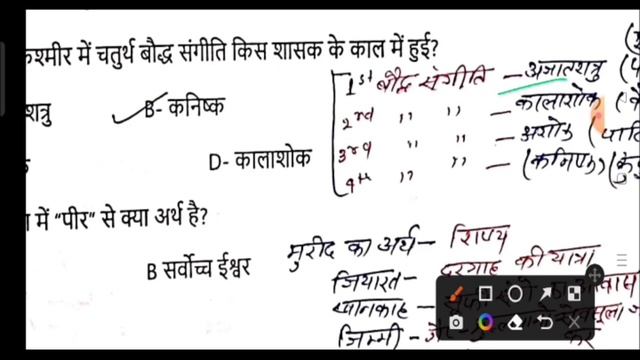 कश्मीर में चतुर्थ बौद्ध संगीति किस शासक के काल में हुई?
शत्रु
B- कनिष्क
D- कालाशोक
1st बौद्ध संगीति – अजातशत्रु
2nd " " – कालाशोक
3rd " " – अशोक
4th " " – (कनिष्क)
में "पीर" से क्या अर्थ है?
B सर्वोच्च ईश्वर
मुरीद का अर्थ – शिष्य
जियारत – दरगाह की यात्रा
खानकाह –
जिम्मी –